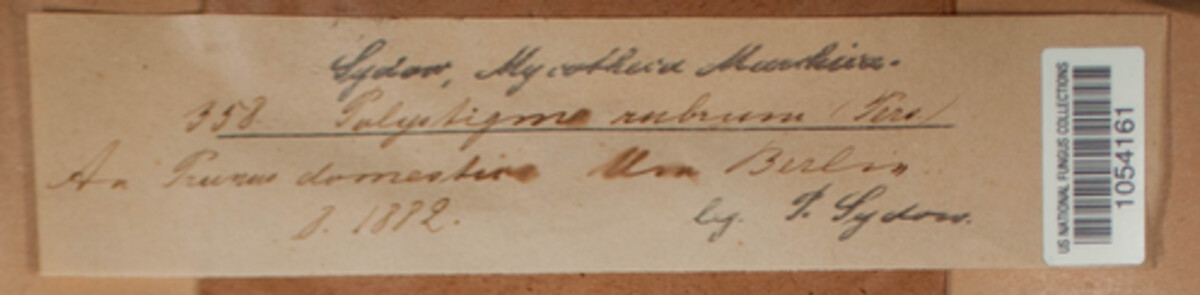 Sydow, Mycotheca Marchica.
358 Polystigma rubrum (Pers)
An Prunus domestica Um Berlin.
8. 1882.
leg. P. Sydow.
US NATIONAL FUNGUS COLLECTIONS
1054161